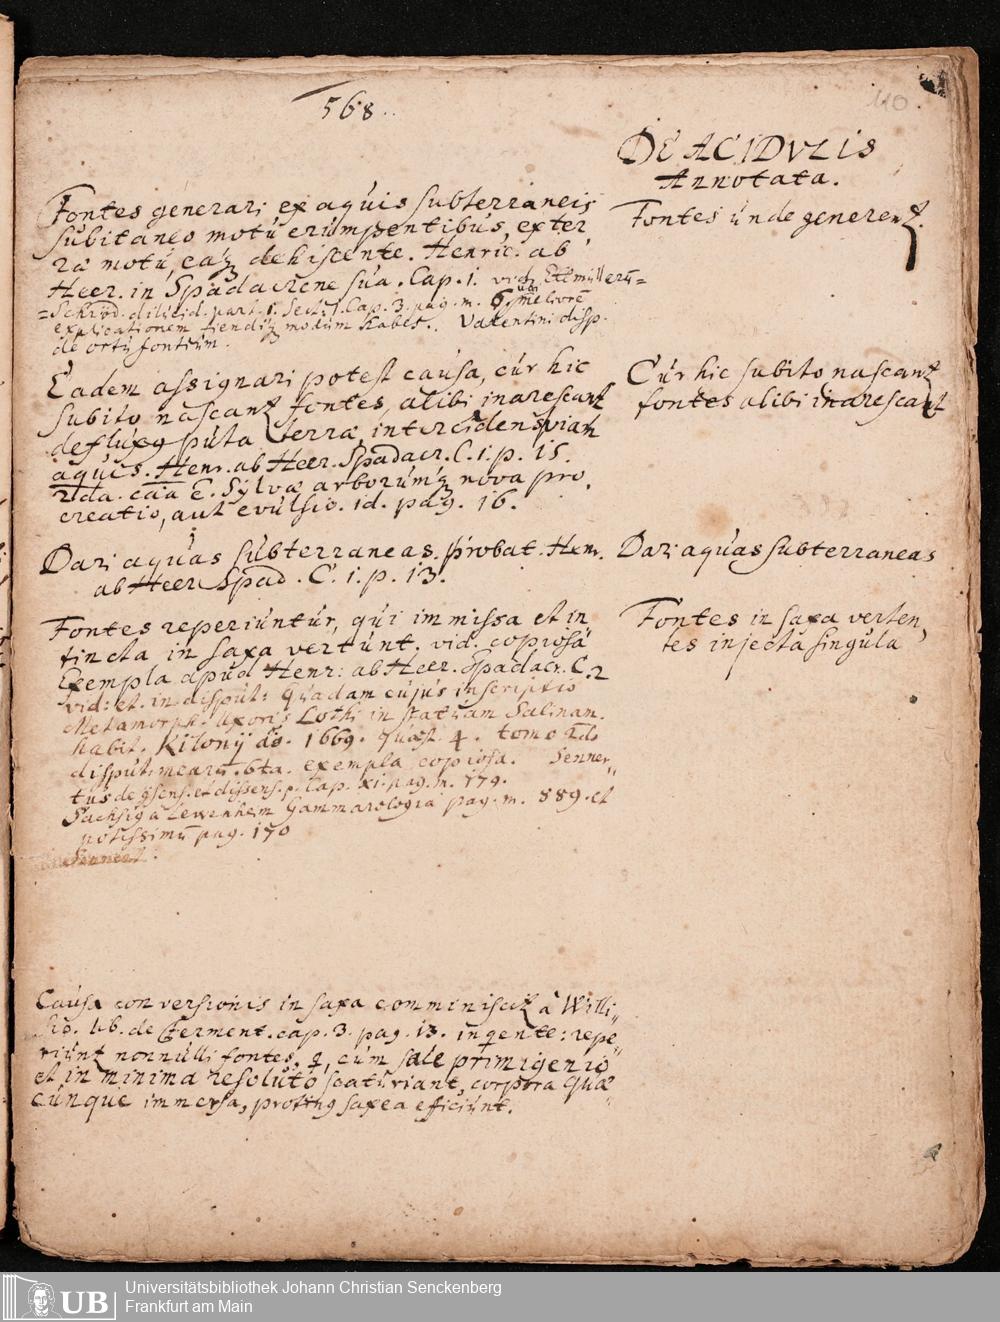 568.
110
DE ACIDVLIS
Annotata.
Fontes generari ex aquis subterraneis
subitaneo motu erumpentibus, ex ter,
ræ motu, eaq dehiscente. Henric. ab
Heer. in Spadacrene sua. Cap. 1. vid. Ettmüllerū=
=Schröd. dilucid. part. 1. Sect. 1. Cap. 3. pag. m. 6.
explicationem fiendiq modum habet. Valentini disp.
de ortu fontium.
Fontes unde generent.
Eadem assignari potest causa, cur hic
subito nascant fontes, alibi inarescant
defluxq puta terræ intercidens viam
aquis. Henr. ab Heer. Spadacr. C. 1. p. 15.
2da. caā E. Sylvæ arborumq nova pro,
creatio, aut evulsio. id. pag. 16.
Cur hic subito nascant
fontes alibi inarescant
Dari aquas subterraneas. probat. Henr.
ab Heer Spad. C. 1. p. 13.
Dari aquas subterraneas
Fontes reperiuntur, qui immissa et in
tincta in saxa vertunt. vid. copiosa
Exempla apud Henr: ab Heer. Spadacr. C. 2
vid: et. in disput: Quadam cujus inscriptio
Metamorph. Uxoris Lothi in statuam Salinam.
habit. Kilonij aō. 1669. quæst. 4. tomo 2do
disput: mearū. 6ta. exempla copiosa. Senner,,
tus de cōsens. et dissens. p. Cap. xi. pag. m. 179.
Sachsig a Lewenheim Gammarologia pag. m. 889. et
potissimū pag. 170
Sennert.
Fontes in saxa verten,
tes injecta singula
Causa conversionis in saxa comminiscit à Willi,,
sio. lib. de Ferment. cap. 3. pag. 13. inqente: repe,,
riunt nonnulli fontes, q, cum sale primigenio
et in minima resoluto scaturiant, corpora quæ
cunque immersa, protinq saxea efficiunt.
UB
Universitätsbibliothek Johann Christian Senckenberg
Frankfurt am Main